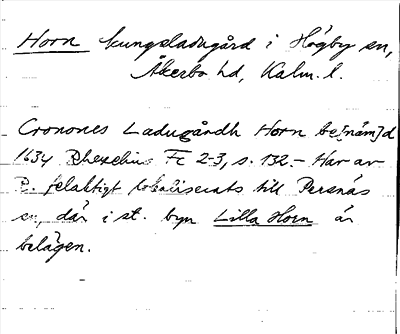 Horn kungsladugård i Högby sn,
Åkerbo hd, Kalm. l.
Cronones Ladugårdh Horn be[näm]d
1634 Rhezelius Fc 2-3, s. 132. – Har av
R. felaktigt lokaliserats till Persnäs
sn, där i st. byn Lilla Horn är
belägen.